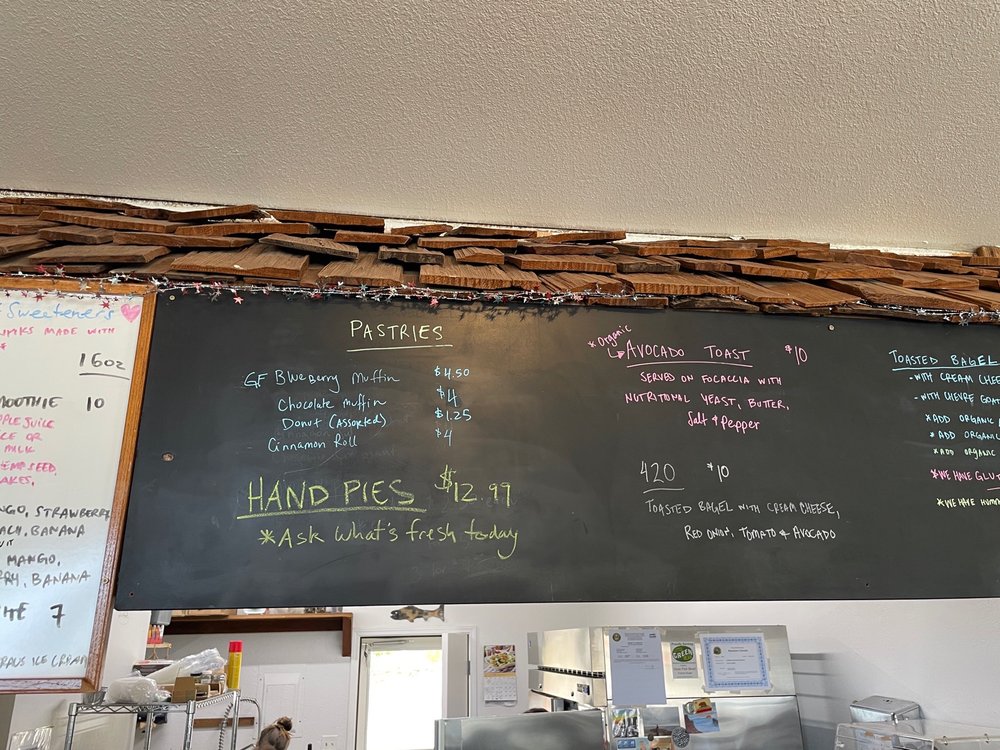 Sweeteners
MADE WITH
16oz
SMOOTHIE 10
APPLE JUICE
OR
MILK
HEMPSEED,
MANGO, STRAWBERRY
BANANA
MANGO,
BANANA
7
ICE CREAM
PASTRIES
GF Blueberry Muffin $4.50
Chocolate Muffin $4
Donut (Assorted) $1.25
Cinnamon Roll $4
HAND PIES $12.99
*Ask What's fresh today
*Organic
AVOCADO TOAST $10
SERVED ON FOCACCIA WITH
NUTRITIONAL YEAST, BUTTER,
Salt & Pepper
420 $10
TOASTED BAGEL WITH CREAM CHEESE,
RED ONION, TOMATO & AVOCADO
TOASTED BAGEL
-WITH CREAM CHEE
-WITH CHEVRE GOAT
*ADD ORGANIC
*ADD ORGANIC
*ADD ORGANIC
*WE HAVE GLUT
*WE HAVE HUMM
GREEN